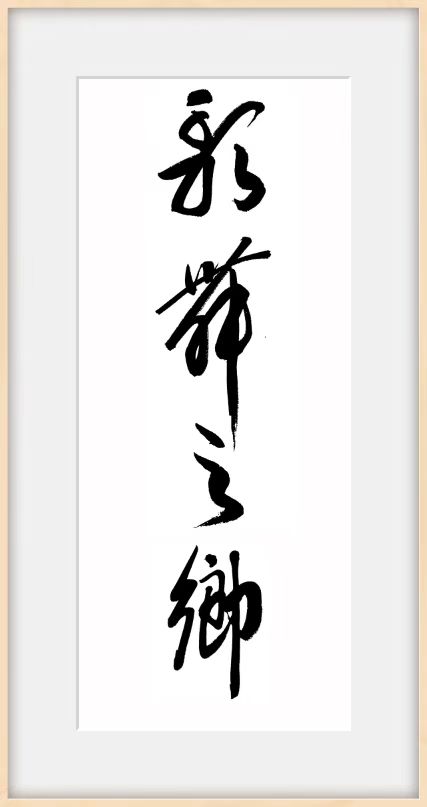 歌舞之鄉